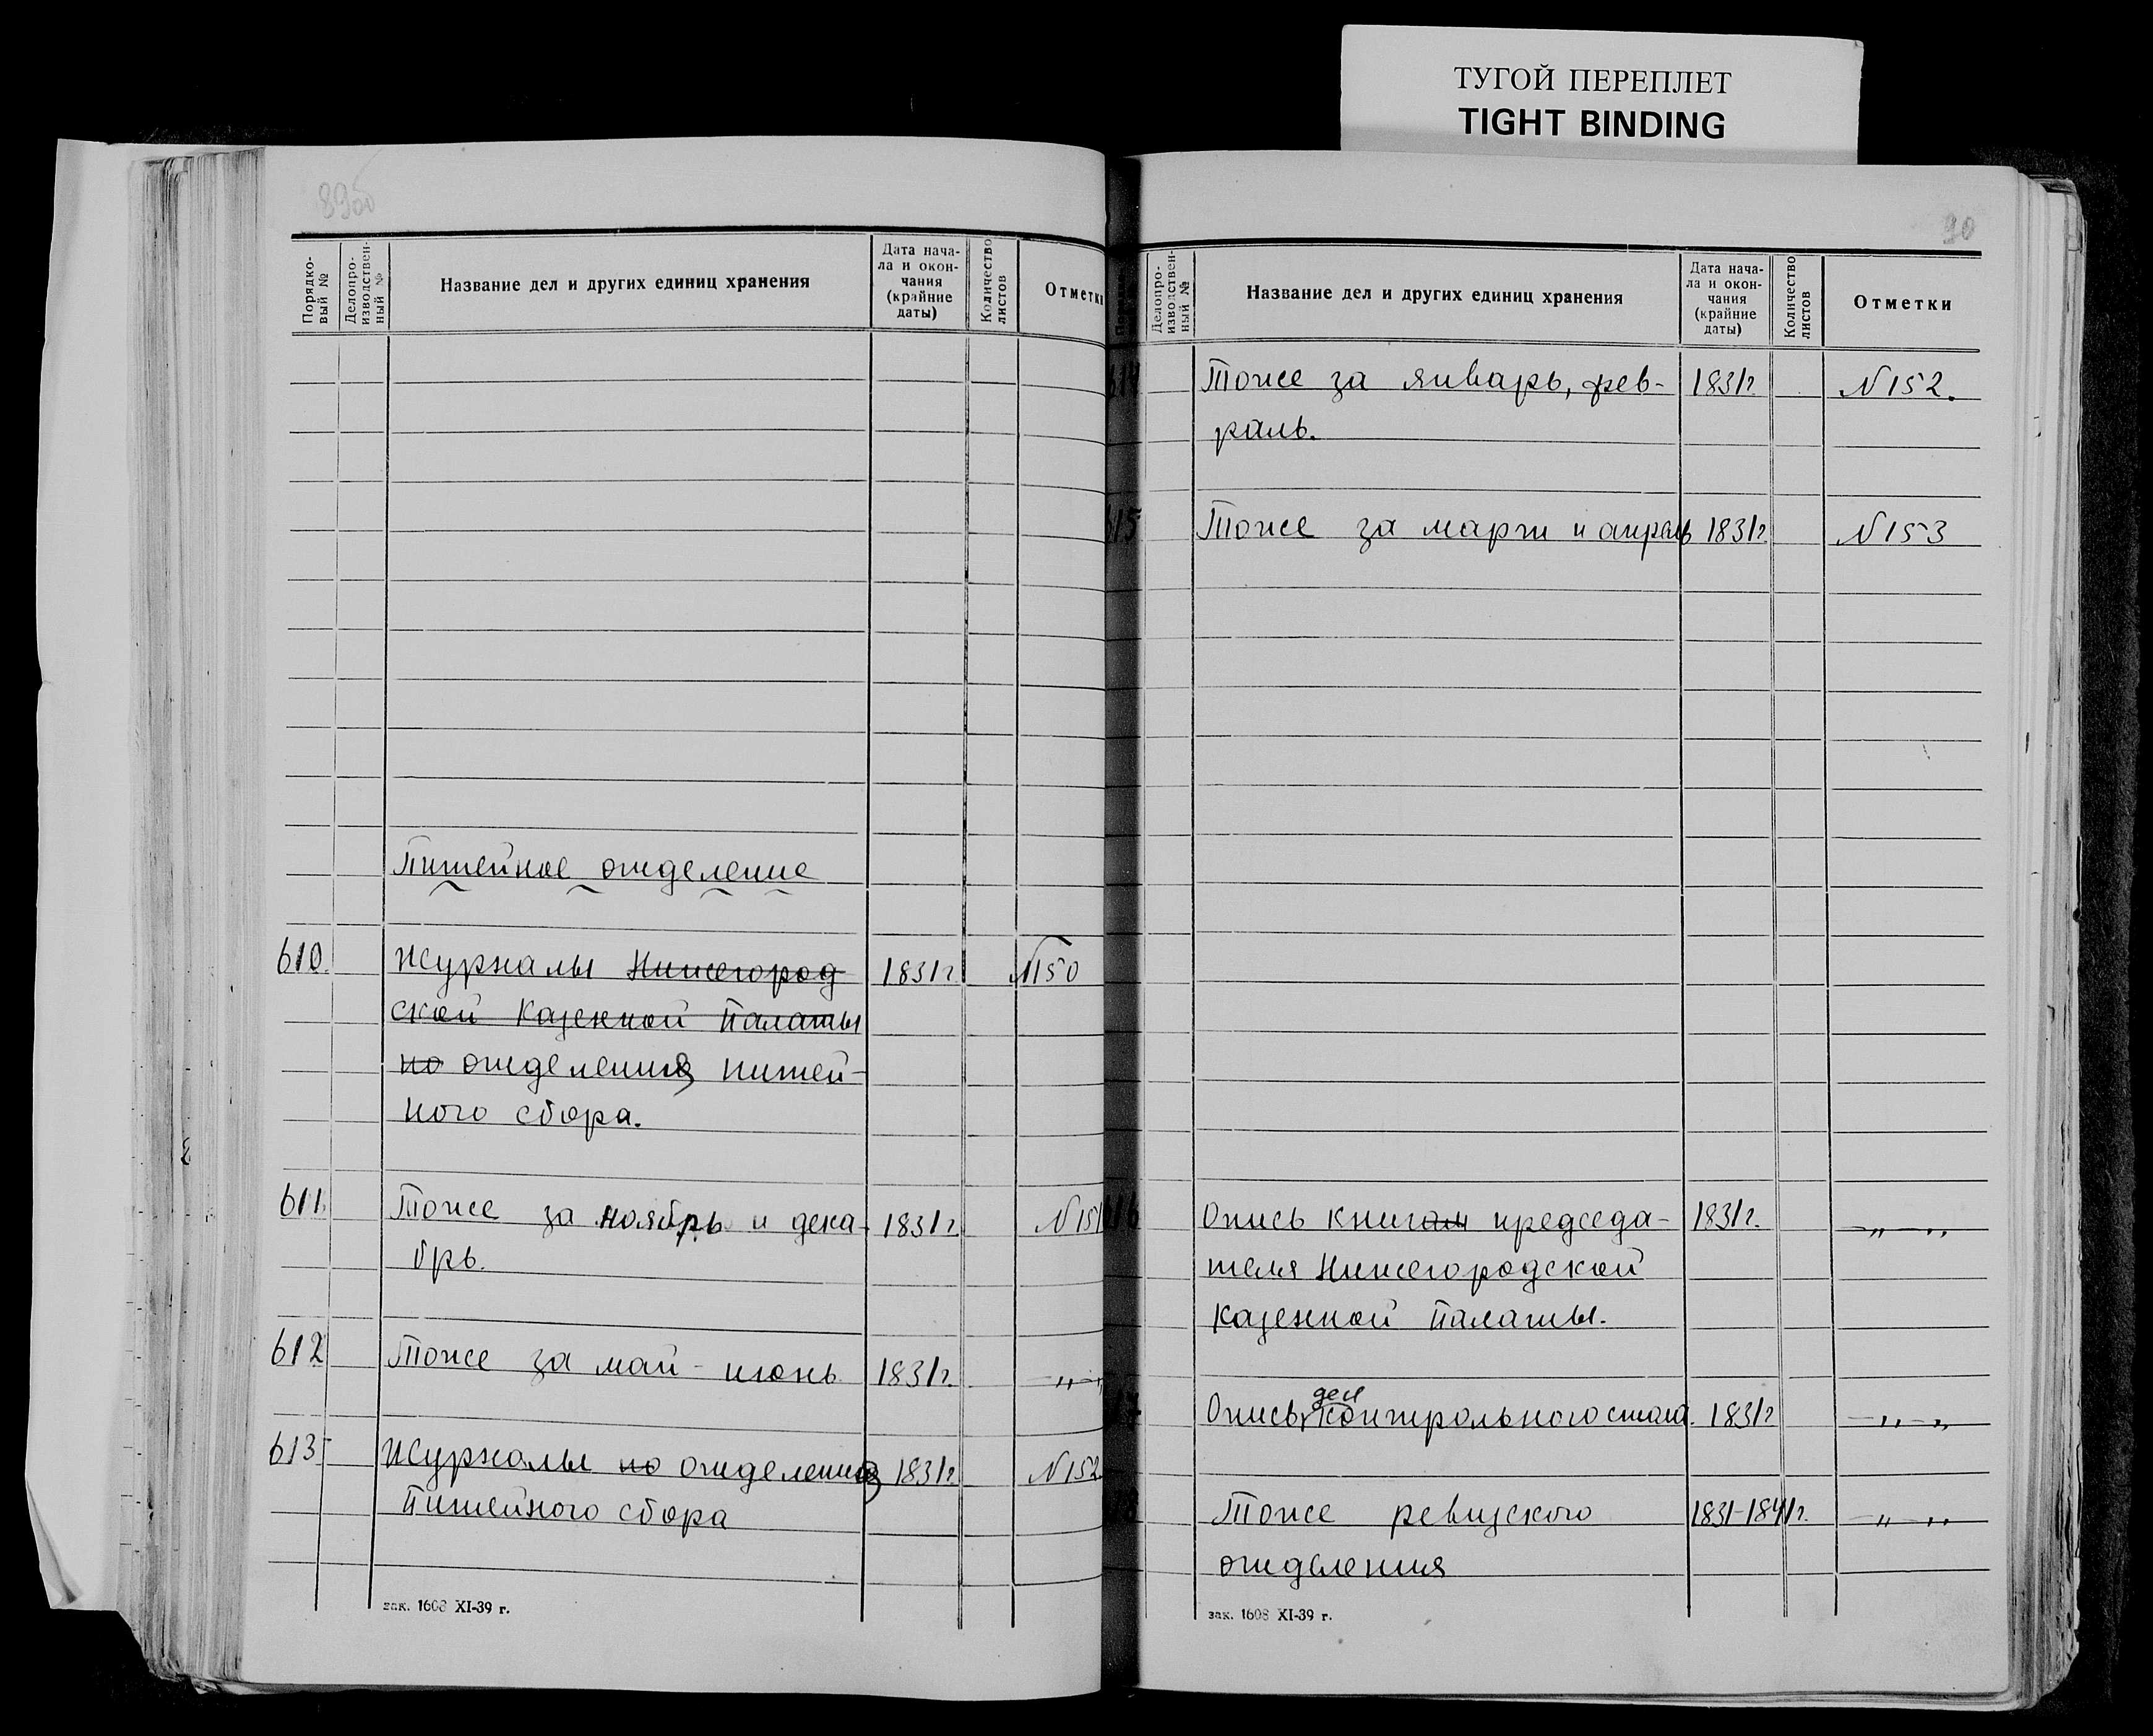 ТУГОЙ ПЕРЕПЛЕТ
TIGHT BINDING
89об
Порядко-
вый №
Делопро-
изводствен-
ный №
Название дел и других единиц хранения
Дата нача-
ла и окон-
чания
(крайние
даты)
Количество
листов
Отметки
Питейное отделение
610. Журналы Нижегород 1831г. N150
ской Казенной Палаты
по отделения питей-
ного сбора.
611. Тоже за ноябрь и дека- 1831г. N151
брь.
612 Тоже за май - июнь 1831г. —„—„
613 Журналы по отделения 1831г. N152
питейного сбора
зак. 1608 XI-39 г.
90
Делопро-
изводствен-
ный №
Название дел и других единиц хранения
Дата нача-
ла и окон-
чания
(крайние
даты)
Количество
листов
Отметки
614 Тоже за январь, фев- 1831г. N152.
раль.
615 Тоже за март и апрель 1831г. N153
616 Опись книгам председа- 1831г. —„—„
теля Нижегородской
Казенной Палаты.
дел
7 Опись контрольного стола. 1831г —„—„
8 Тоже ревизского 1831-1841г. —„—„
отделения
зак. 1608 XI-39 г.